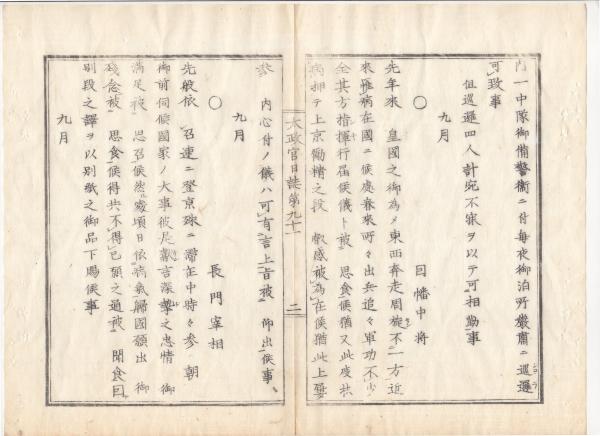 内一中隊御備警衛ニ付毎夜御泊所嚴肅ニ巡邏
可致事
但巡邏四人計宛不寐ヲ以テ可相勤事
九月
○　因幡中将
先年來　皇國之御為メ東西奔走周旋不一方近
來罹病在國ニ候處春來所々出兵追々軍功不少
全其方指揮行届候儀ト被　思食候猶又此度共
病押テ上京勵精之段　叡感被為在候猶此上要
太政官日誌第九十一　二
務　内心付ノ儀ハ可有言上旨被　仰出候事
九月
○　長門宰相
先般依　召速ニ登京殊ニ滞在中時々参　朝
御前伺候國家ノ大事彼是獻言深摯之忠情　御
満足被　思召候然處頃日依病氣歸國願出　御
残念被　思食候得共不得已願之通被　聞食囘
別段之譯ヲ以別紙之御品下賜候事
九月